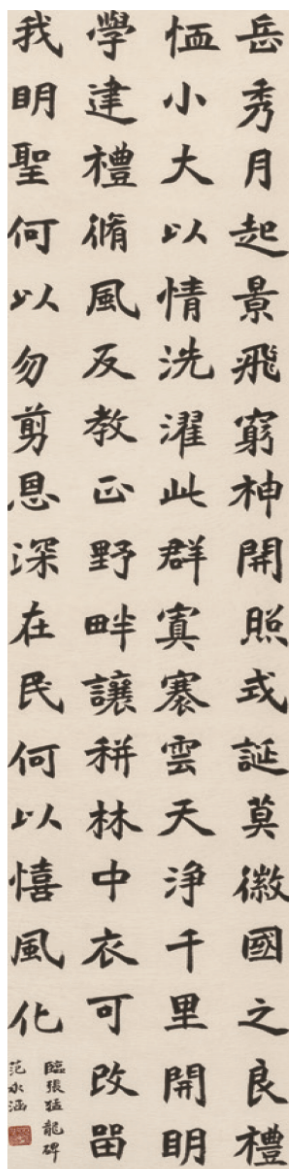 岳秀月起景飛窮神開照式誕莫徽國之良禮
恤小大以情洗濯此群寞褰雲天淨千里開明
學建禮脩風反教正野畔讓耕林中衣可改留
我明聖何以勿剪恩深在民何以憘風化
臨張猛龍碑
范永涵